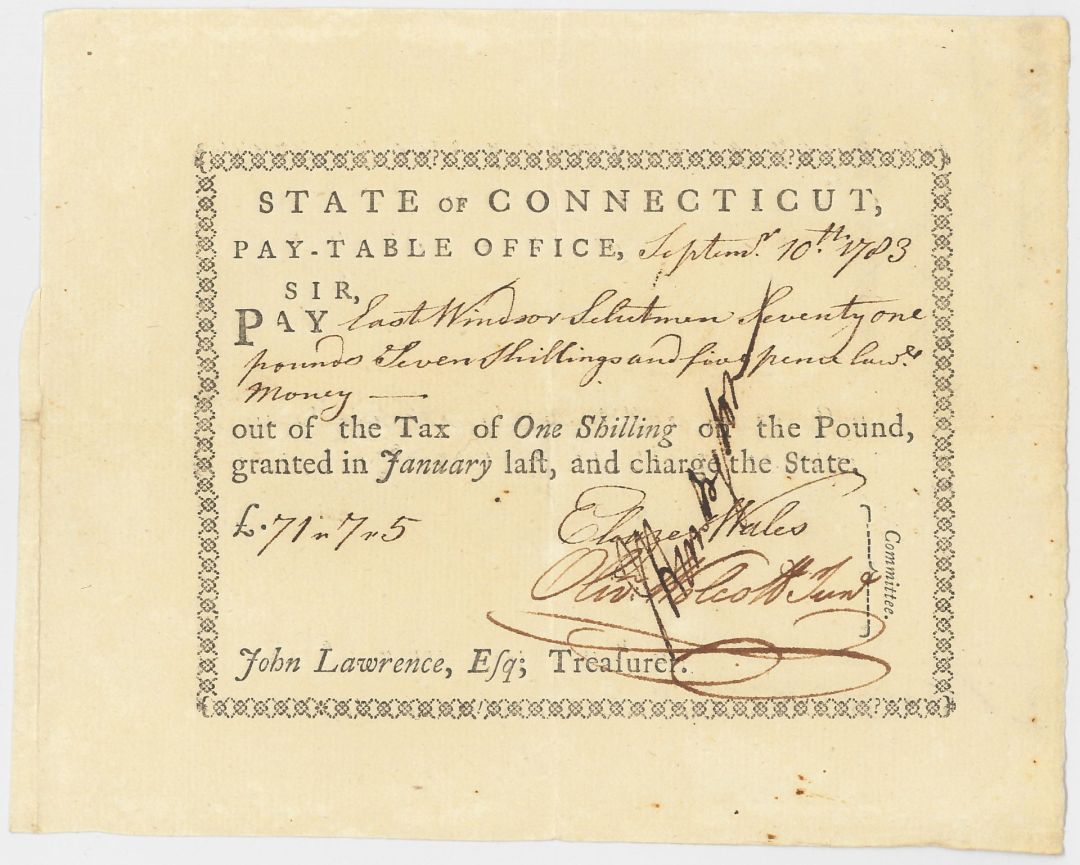 STATE OF CONNECTICUT,
PAY-TABLE OFFICE, Septemr. 10th. 1783
SIR,
PAY East Windsor Selectmen Seventy one
pounds Seven Shillings and five pence law.
Money —
out of the Tax of One Shilling on the Pound,
granted in January laſt, and charge the State.
£.71„7„5
Eleazer Wales
Olivr. Wolcott Junr
Committee.
John Lawrence, Eſq; Treaſurer.